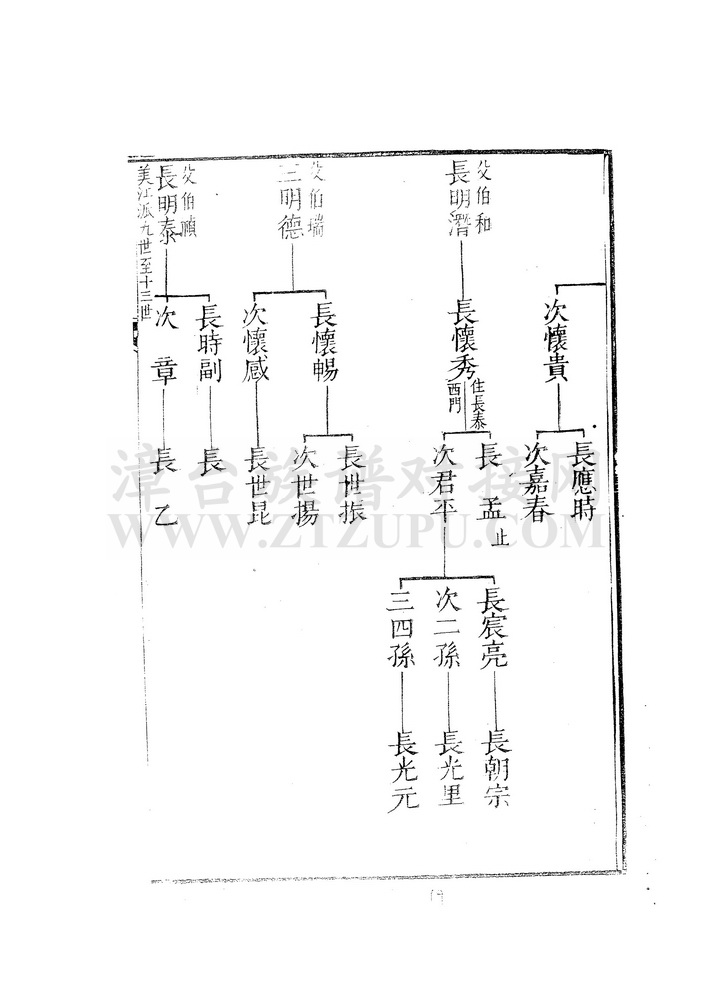 次懷貴
長應時
次嘉春
父伯和
長明潛
長懷秀
住長泰
西門
長孟
止
次君平
長宸亮
長朝宗
次二孫
長光里
三四孫
長光元
父伯瑞
三明德
長懷暢
長世振
次世揚
次懷感
長世昆
父伯順
長明泰
長時副
長
次章
長乙
美江派九世至十三世
漳台族谱对接网
WWW.ZTZUPU.COM